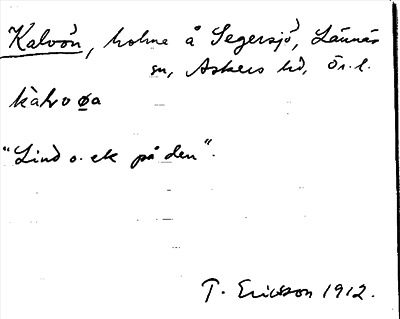 Kalvön, holme å Segersjö, Lännäs
sn, Askers hd, Ör. l.
kàlvo øa
"Lind o. ek på den".
T. Ericsson 1912.